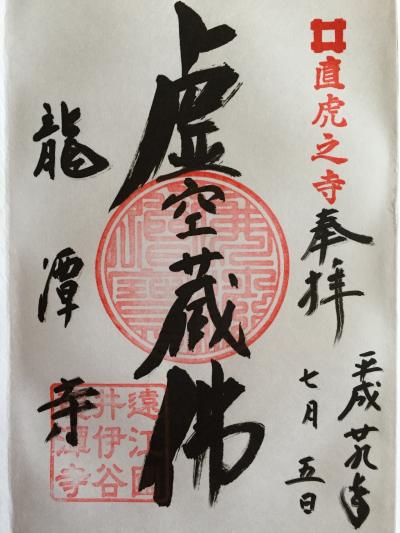 直虎之寺
奉拝
平成廿九年
七月五日
虚空蔵佛
龍潭寺
遠江国
井伊谷
龍潭寺